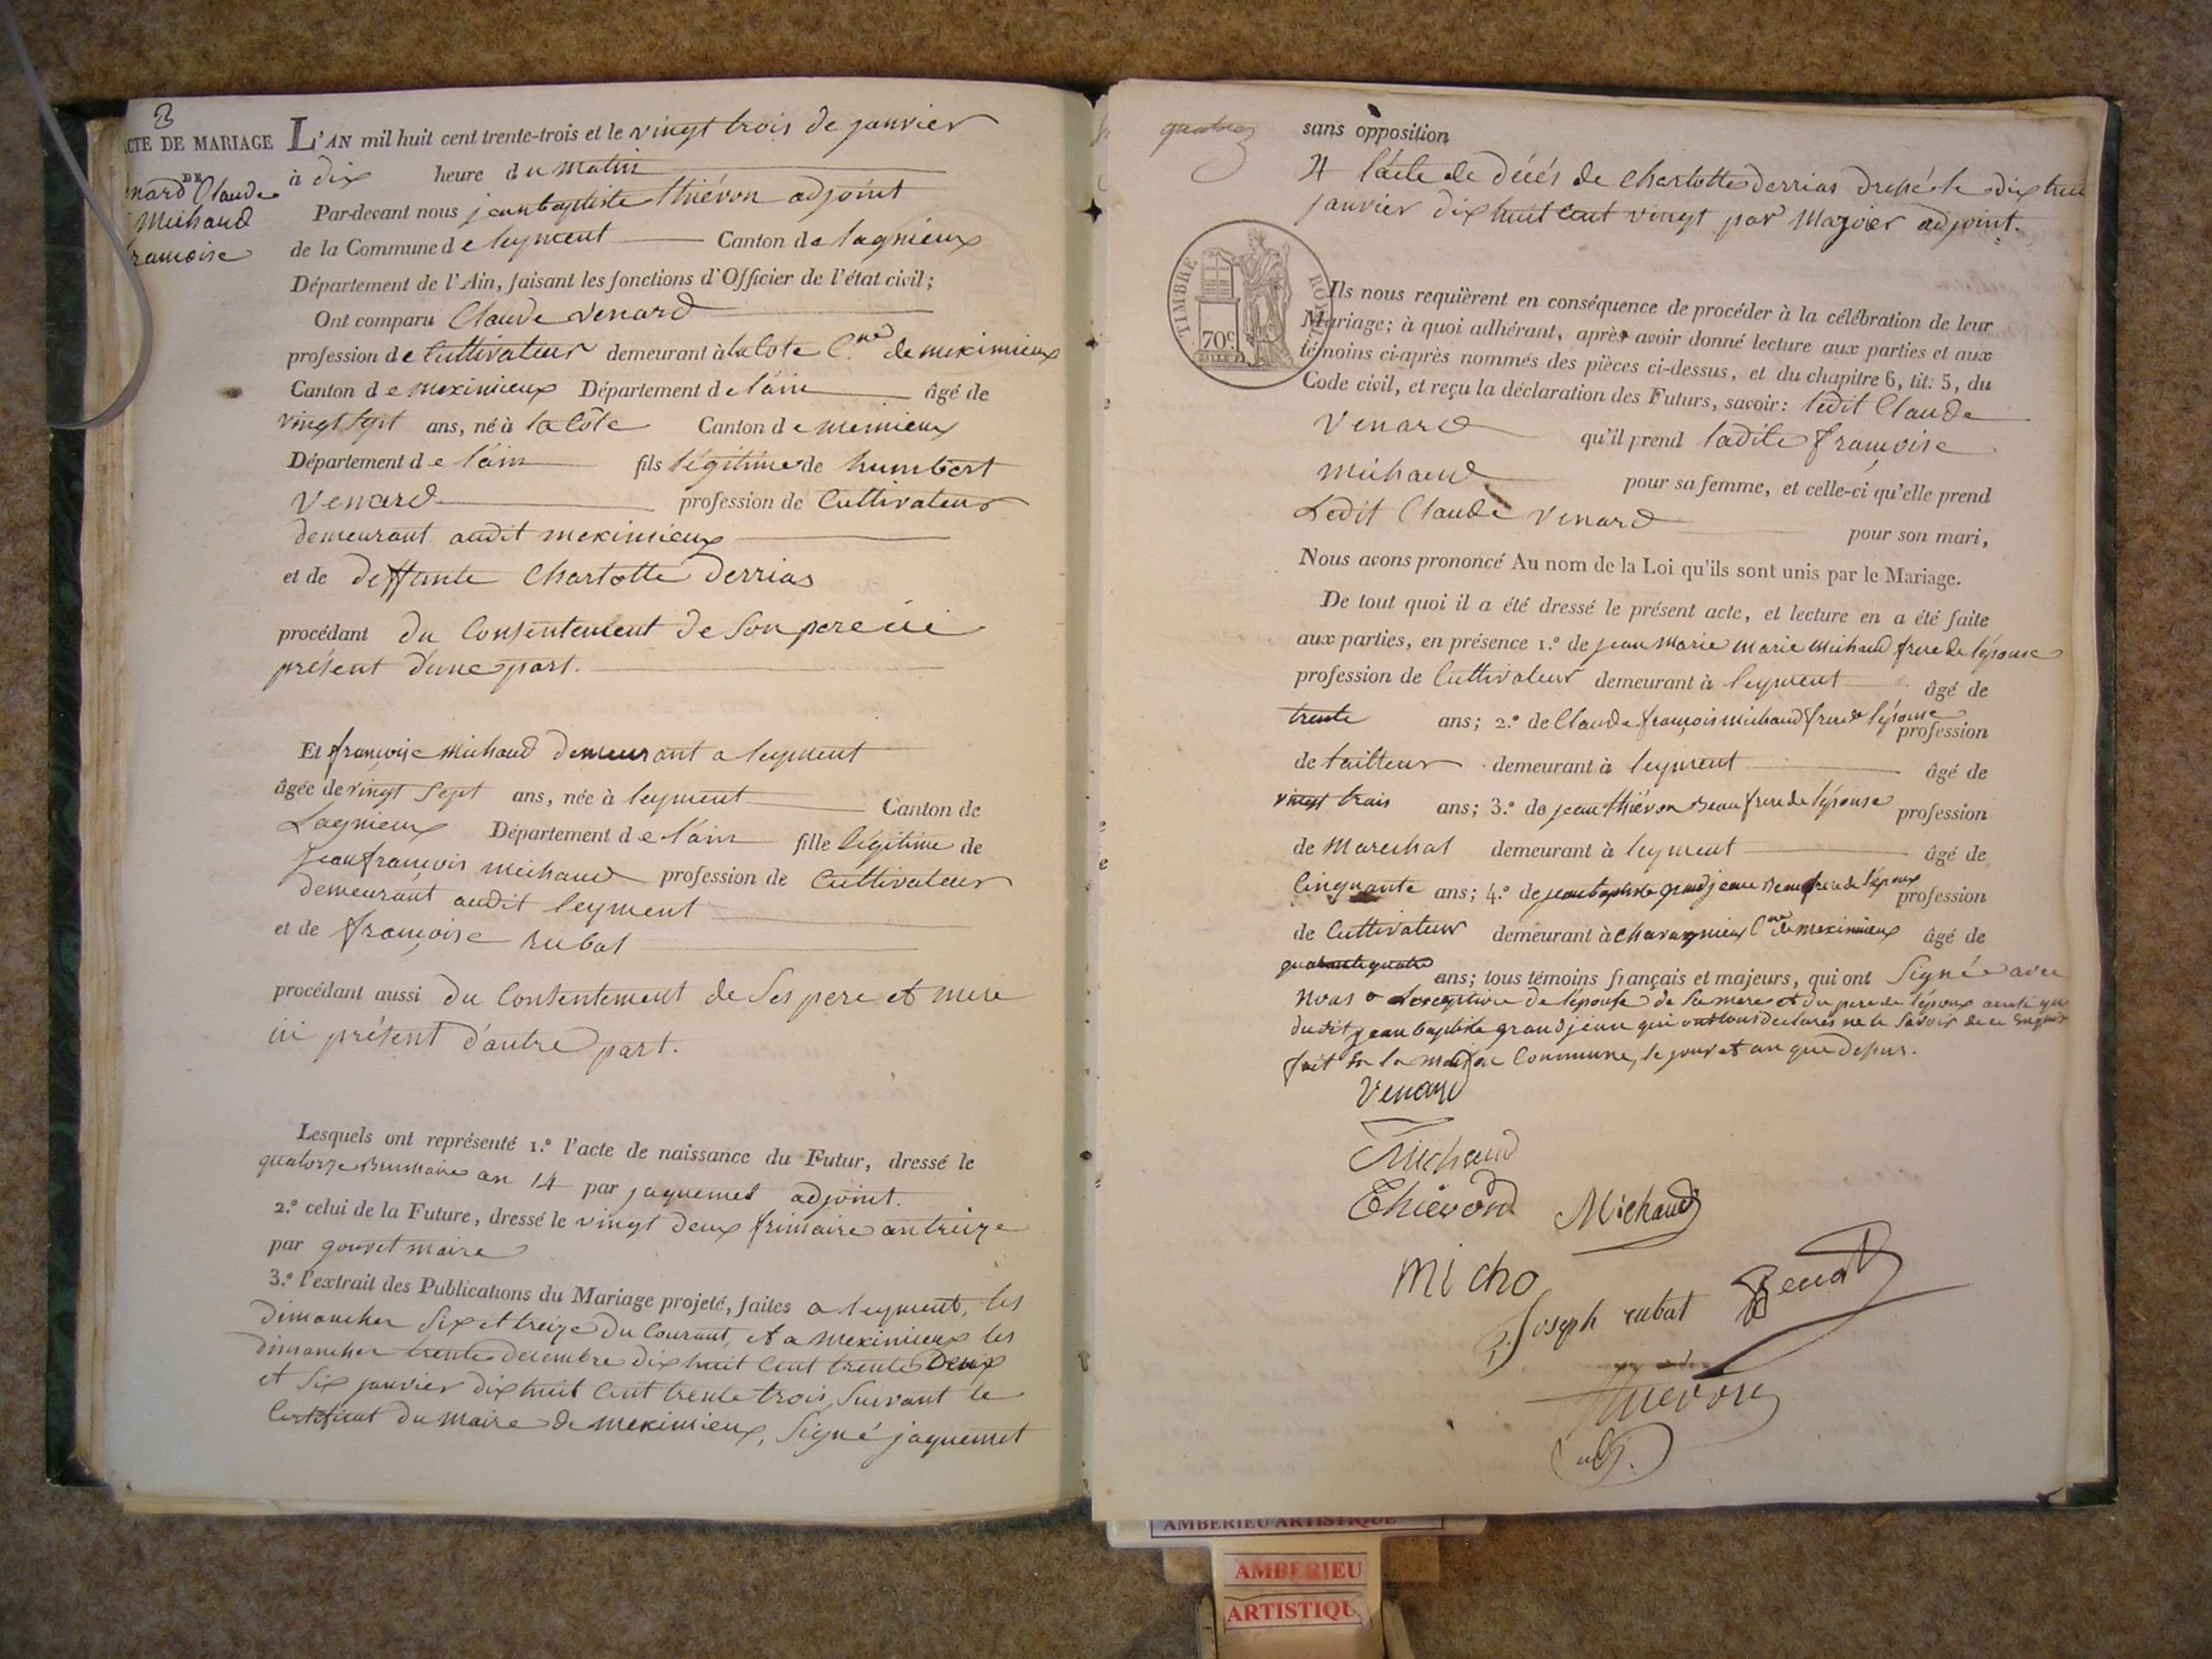 3
ACTE DE MARIAGE
DE
enard Claude
Michaud
francoise
L'AN mil huit cent trente-trois et le vingt trois de janvier
à dix heure du matin
Par-devant nous jean baptiste thiévon adjoint
de la Commune de leyment Canton de lagnieux
Département de l'Ain, faisant les fonctions d'Officier de l'état civil;
Ont comparu Claude Venard
profession de Cultivateur demeurant à la Cote C.ne de meximieux
Canton de meximieux Département de l'ain âgé de
vingt sept ans, né à la Côte Canton de meimieux
Département de l'ain fils légitime de humbert
Venard profession de Cultivateur
demeurant audit meximieux
et de deffunte Charlotte derrias
procédant du Consentement de Son pere ici
présent d'une part.
Et françoise michaud demeurant a leyment
âgée de vingt Sept ans, née à leyment Canton de
Lagnieux Département de l'ain fille légitime de
Jean françois michaud profession de Cultivateur
demeurant audit leyment
et de françoise rubat
procédant aussi du Consentement de Ses pere et mere
ici présent d'autre part.
Lesquels ont représenté 1.º l'acte de naissance du Futur, dressé le
quatorze Brumaire an 14 par jaquemet adjoint.
2.º celui de la Future, dressé le vingt deux frimaire an treize
par gouvet maire
3.º l'extrait des Publications du Mariage projeté, faites a leyment, les
dimanches Six et treize du Courant, et a meximieux les
dimanches trente decembre dix huit Cent trente Deux
et Six janvier dix huit Cent trente trois, Suivant le
Certificat du Maire de meximieux, Signé jaquemet
sans opposition
4 l'acte de décés de Charlotte derrias dressé le dix huit
janvier dix huit Cent vingt par Mazoier adjoint.
TIMBRE ROYAL
70c
Ils nous requièrent en conséquence de procéder à la célébration de leur
Mariage; à quoi adhérant, après avoir donné lecture aux parties et aux
témoins ci-après nommés des pièces ci-dessus, et du chapitre 6, tit: 5, du
Code civil, et reçu la déclaration des Futurs, savoir: ledit Claude
Venard qu'il prend ladite françoise
michaud pour sa femme, et celle-ci qu'elle prend
Ledit Claude Venard pour son mari,
Nous avons prononcé Au nom de la Loi qu'ils sont unis par le Mariage.
De tout quoi il a été dressé le présent acte, et lecture en a été faite
aux parties, en présence 1.º de jean Marie marie michaud frere de l'épouse
profession de Cultivateur demeurant à leyment âgé de
trente ans; 2.º de Claude françois michaud frere de l'épouse profession
de tailleur demeurant à leyment âgé de
vingt trois ans; 3.º de jean thiévon Beau frere de l'épouse profession
de Marechal demeurant à leyment âgé de
Cinquante ans; 4.º de jean baptiste grand jean Beau frere de l'époux profession
de Cultivateur demeurant à Charagnieux C.ne de meximieux âgé de
quarante quatre ans; tous témoins français et majeurs, qui ont Signé avec
nous a L'exception de l'épouse de Sa mere et du pere de l'époux ainsi que
dudit jean baptiste grand jean qui ont tous declarés ne le Savoir de ce Enquis
fait En la maison Commune, le jour et an que dessus.
Venard
Michaud
Thievon Michaud
Micho
Joseph rubat
Thievon
adj.
AMBERIEU ARTISTIQUE
AMBERIEU
ARTISTIQU